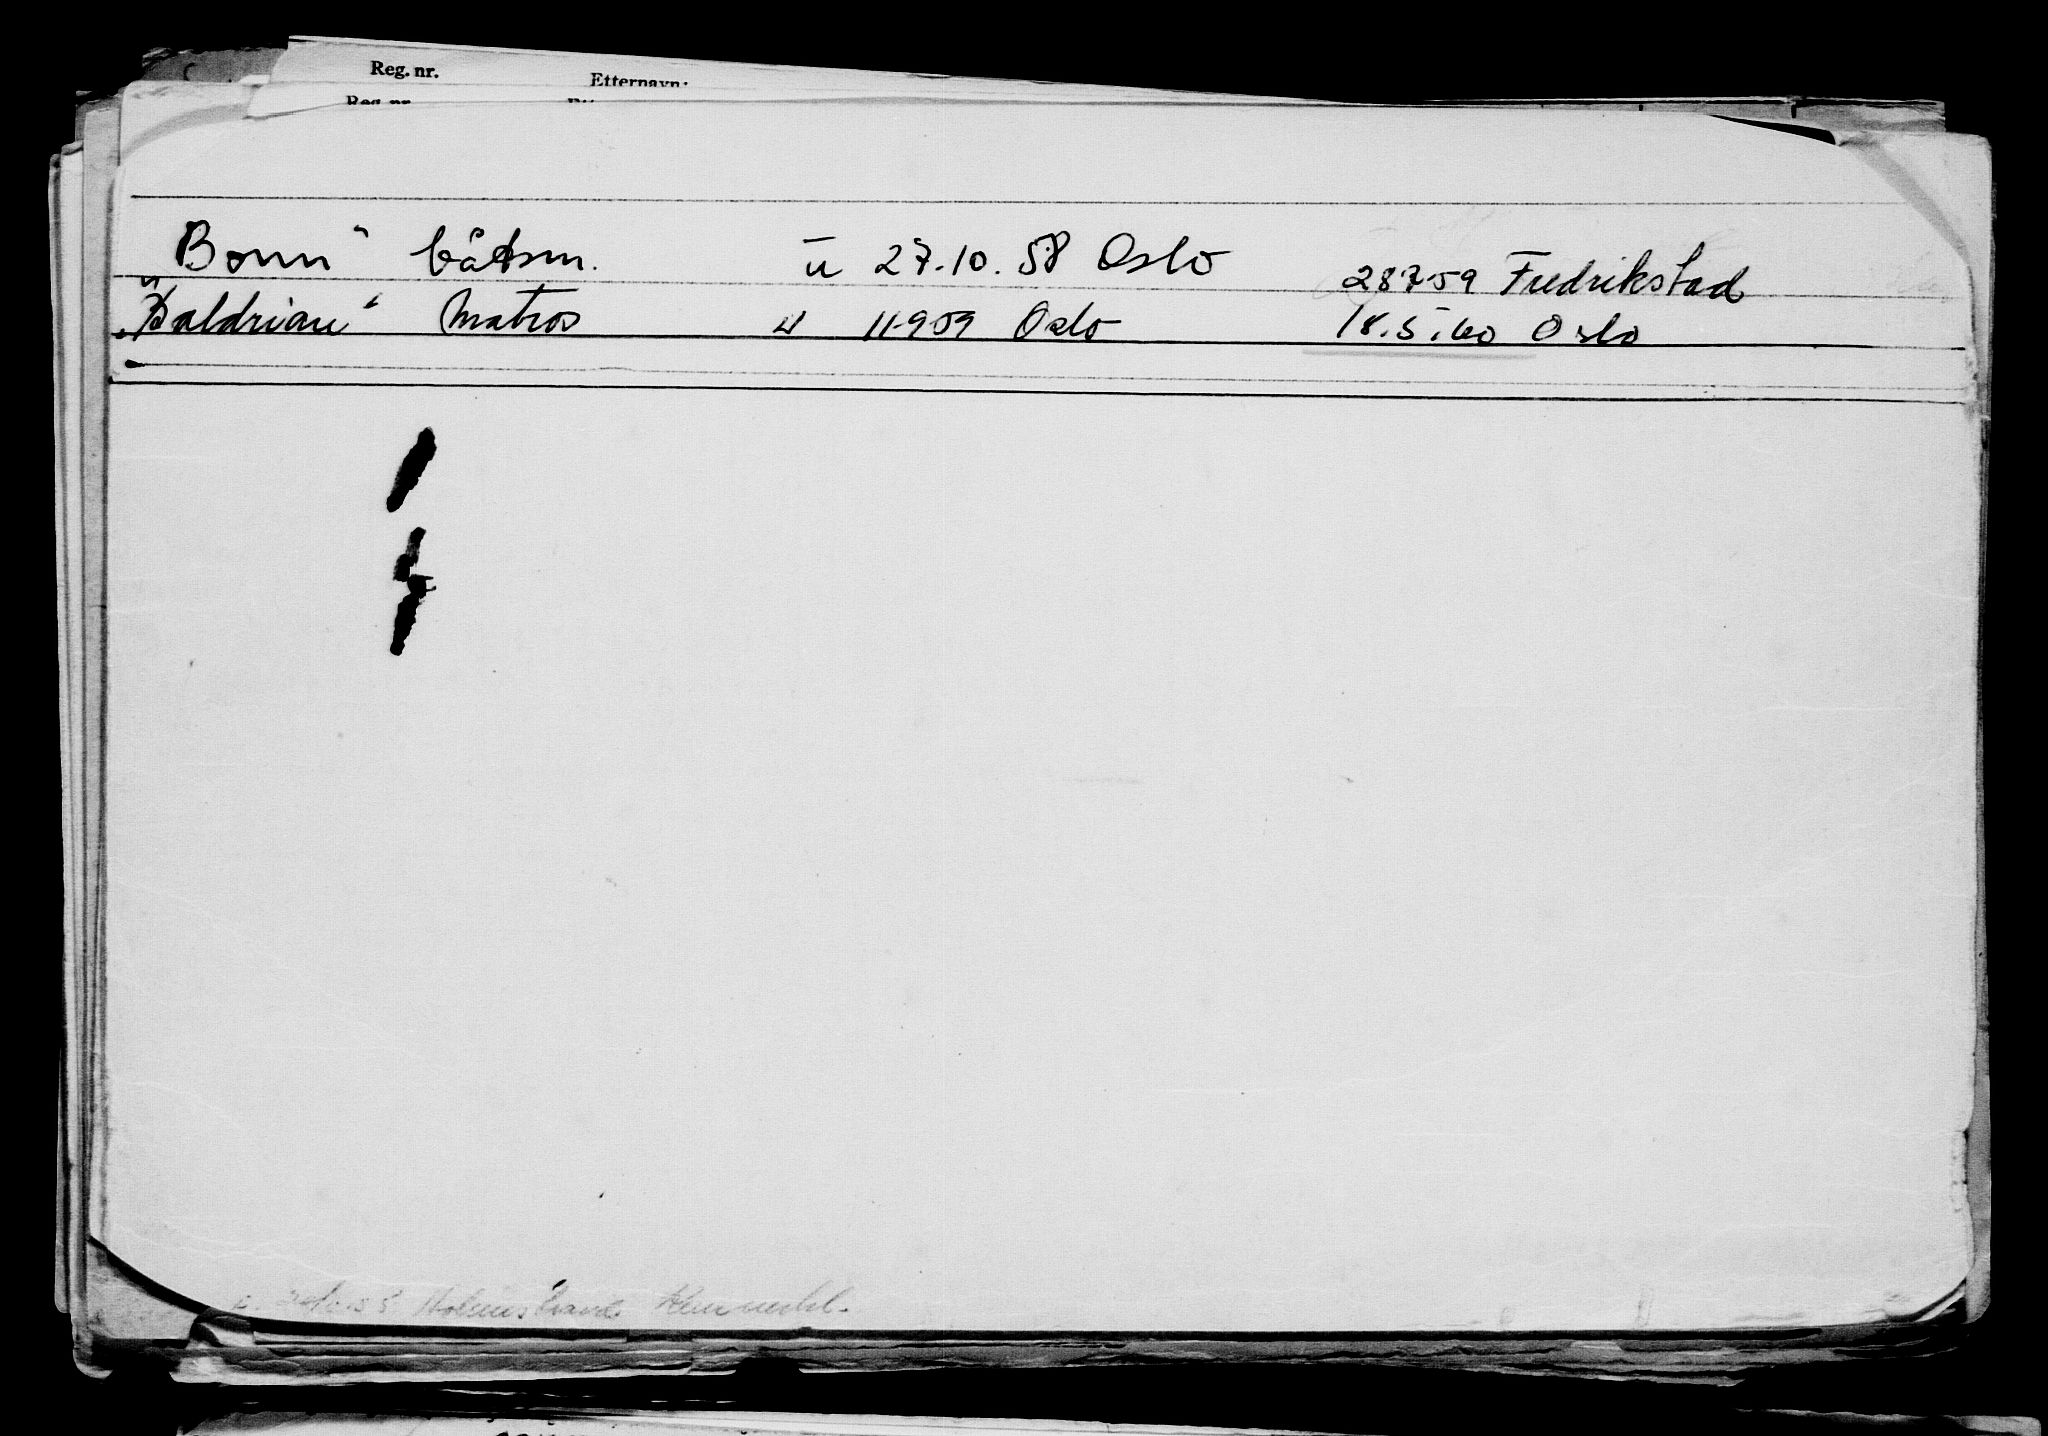 Reg. nr. Etternavn:
Reg. nr.
Bonn" båtsm. u 27.10.58 Oslo 28759 Fredrikstad
"Baldrian" Matros u 11-959 Oslo 18.5.60 Oslo